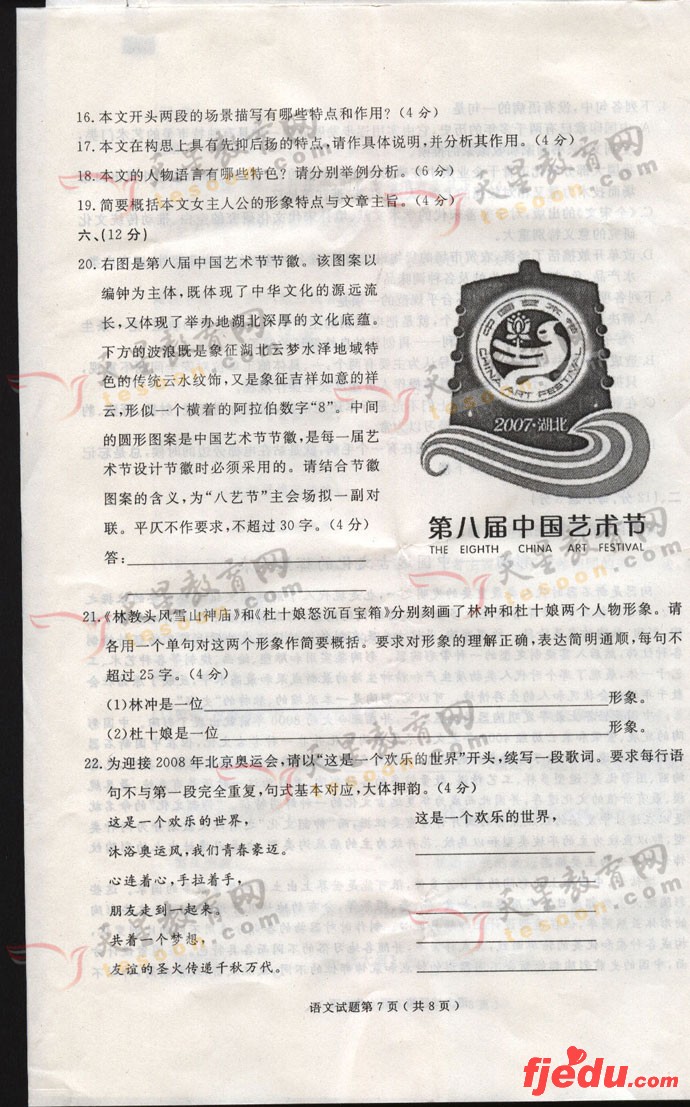 16.本文开头两段的场景描写有哪些特点和作用?(4分)
17.本文在构思上具有先抑后扬的特点,请作具体说明,并分析其作用。(4分)
18.本文的人物语言有哪些特色?请分别举例分析。(6分)
19.简要概括本文女主人公的形象特点与文章主旨。(4分)
六、(12分)
20.右图是第八届中国艺术节节徽。该图案以
编钟为主体,既体现了中华文化的源远流
长,又体现了举办地湖北深厚的文化底蕴。
下方的波浪既是象征湖北云梦水泽地域特
色的传统云水纹饰,又是象征吉祥如意的祥
云,形似一个横着的阿拉伯数字“8”。中间
的圆形图案是中国艺术节节徽,是每一届艺
术节设计节徽时必须采用的。请结合节徽
图案的含义,为“八艺节”主会场拟一副对
联。平仄不作要求,不超过30字。(4分)
答:
中国艺术节
CHINA ART FESTIVAL
2007·湖北
第八届中国艺术节
THE EIGHTH CHINA ART FESTIVAL
21.《林教头风雪山神庙》和《杜十娘怒沉百宝箱》分别刻画了林冲和杜十娘两个人物形象。请
各用一个单句对这两个形象作简要概括。要求对形象的理解正确,表达简明通顺,每句不
超过25字。(4分)
(1)林冲是一位 形象。
(2)杜十娘是一位 形象。
22.为迎接2008年北京奥运会,请以“这是一个欢乐的世界”开头,续写一段歌词。要求每行语
句不与第一段完全重复,句式基本对应,大体押韵。(4分)
这是一个欢乐的世界, 这是一个欢乐的世界,
沐浴奥运风,我们青春豪迈。
心连着心,手拉着手,
朋友走到一起来。
共着一个梦想,
友谊的圣火传递千秋万代。
语文试题第7页(共8页)
天星教育网
tesoon.com
fjedu.com